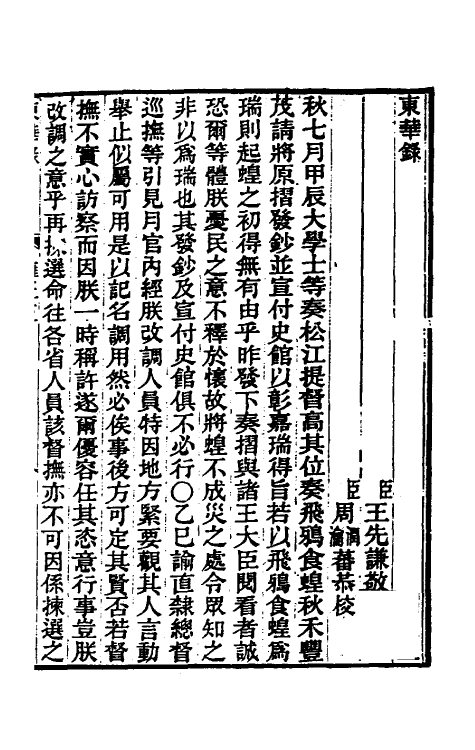 東華錄
臣王先謙敬
臣周潤蕃恭校
秋七月甲辰大學士等奏松江提督高其位奏飛鴉食蝗秋禾豐
茂請將原摺發鈔並宣付史館以彰嘉瑞得旨若以飛鴉食蝗爲
瑞則起蝗之初得無有由乎昨發下奏摺與諸王大臣閱看者誠
恐爾等體朕憂民之意不釋於懷故將蝗不成災之處令眾知之
非以爲瑞也其發鈔及宣付史館俱不必行〇乙巳諭直隸總督
巡撫等引見月官內經朕改調人員特因地方緊要觀其人言動
舉止似屬可用是以記名調用然必俟事後方可定其賢否若督
撫不實心訪察而因朕一時稱許遂爾優容任其恣意行事豈朕
改調之意乎再揀選命往各省人員該督撫亦不可因係揀選之